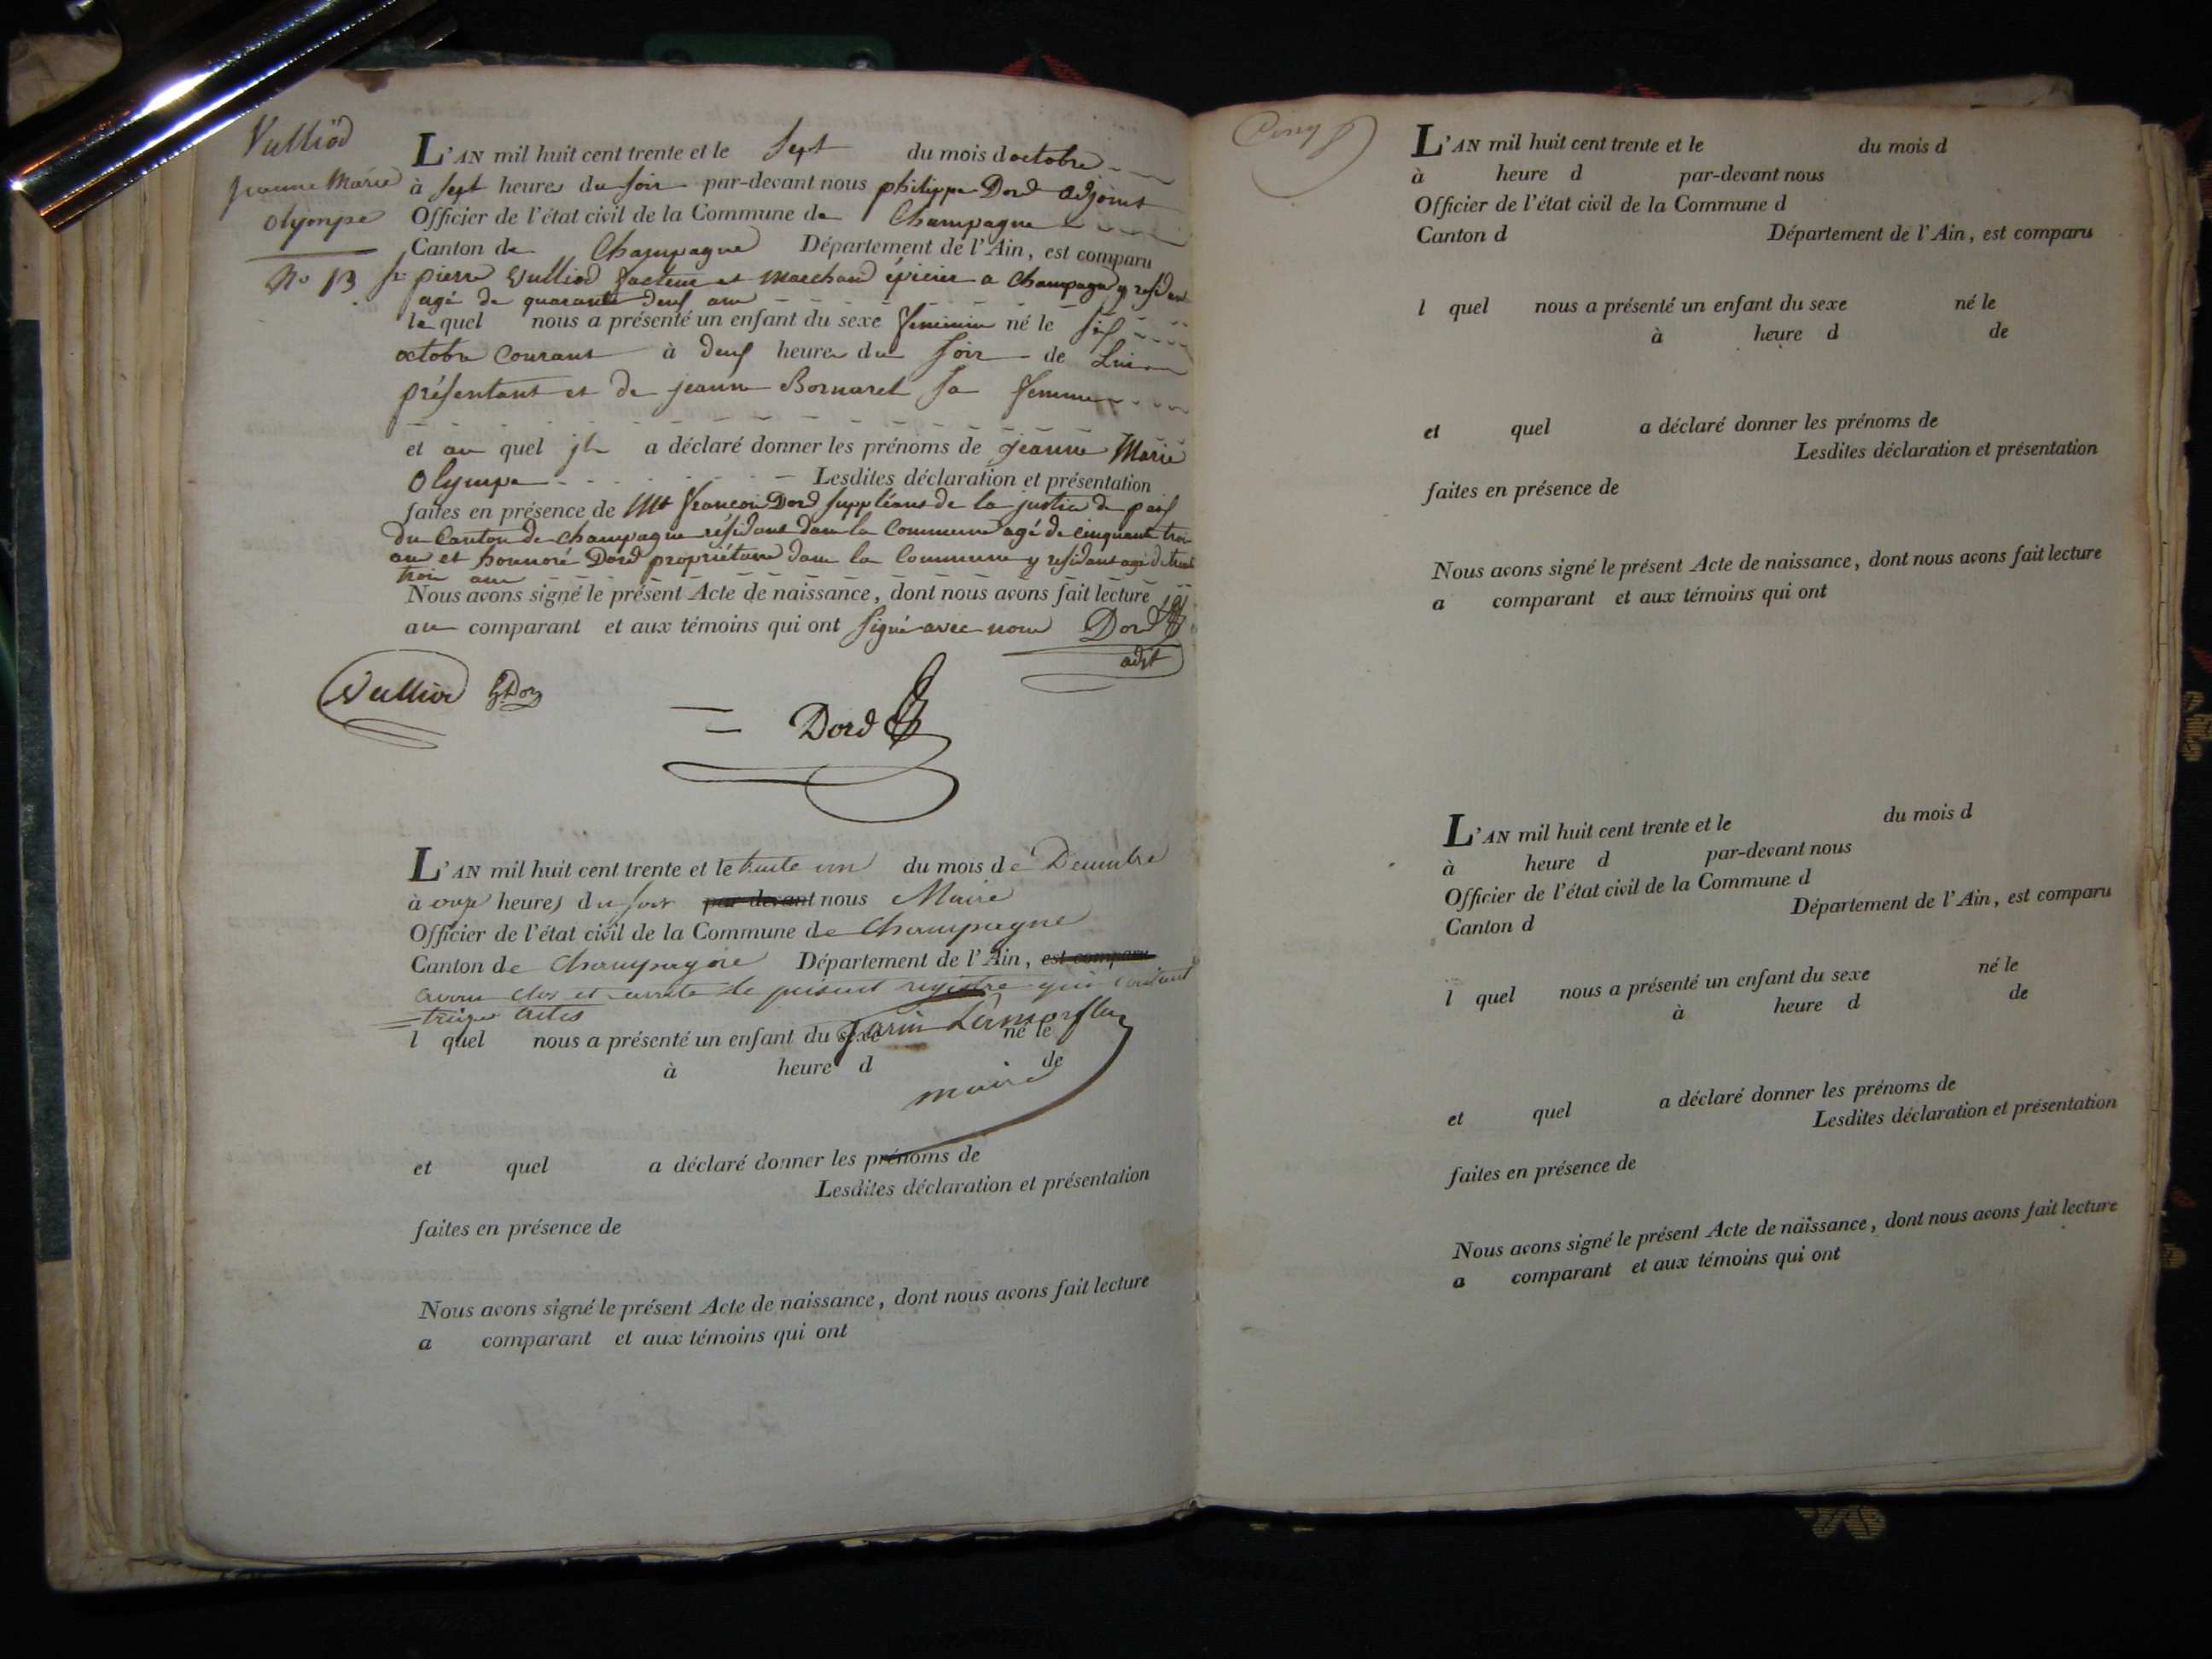 Vulliod
Jeanne Marie
olympe
No 13
L'AN mil huit cent trente et le Sept du mois d octobre
à Sept heures du soir par-devant nous philippe Dord adjoint
Officier de l'état civil de la Commune de Champagne
Canton de Champagne Département de l'Ain, est comparu
Sr pierre Vulliod facteur et marchand épicier a Champagne y residant
agé de quarante deux ans
le quel nous a présenté un enfant du sexe feminin né le six
octobre courant à deux heures du soir de Lui
présentant et de jeanne Bornaret sa femme
et au quel il a déclaré donner les prénoms de Jeanne Marie
Olympe Lesdites déclaration et présentation
faites en présence de Mr françois Dord suppléant de la justice de paix
du Canton de champagne résidant dans la Commune agé de cinquante trois
ans et honnoré Dord propriétaire dans la Commune y residant agé de trente
trois ans
Nous avons signé le présent Acte de naissance, dont nous avons fait lecture
au comparant et aux témoins qui ont signé avec nous Dord
adjt
Vulliod Dord
Dord
L'AN mil huit cent trente et le trente un du mois de Decembre
à onze heures du soir par-devant nous Maire
Officier de l'état civil de la Commune de Champagne
Canton de Champagne Département de l'Ain, est comparu
avons clos et arrete le présent registre qui contient
treize actes
l quel nous a présenté un enfant du sexe né le
à heure d de
maire
et quel a déclaré donner les prénoms de
Lesdites déclaration et présentation
faites en présence de
Nous avons signé le présent Acte de naissance, dont nous avons fait lecture
a comparant et aux témoins qui ont
Cinq
L'AN mil huit cent trente et le du mois d
à heure d par-devant nous
Officier de l'état civil de la Commune d
Canton d Département de l'Ain, est comparu
l quel nous a présenté un enfant du sexe né le
à heure d de
et quel a déclaré donner les prénoms de
Lesdites déclaration et présentation
faites en présence de
Nous avons signé le présent Acte de naissance, dont nous avons fait lecture
a comparant et aux témoins qui ont
L'AN mil huit cent trente et le du mois d
à heure d par-devant nous
Officier de l'état civil de la Commune d
Canton d Département de l'Ain, est comparu
l quel nous a présenté un enfant du sexe né le
à heure d de
et quel a déclaré donner les prénoms de
Lesdites déclaration et présentation
faites en présence de
Nous avons signé le présent Acte de naissance, dont nous avons fait lecture
a comparant et aux témoins qui ont